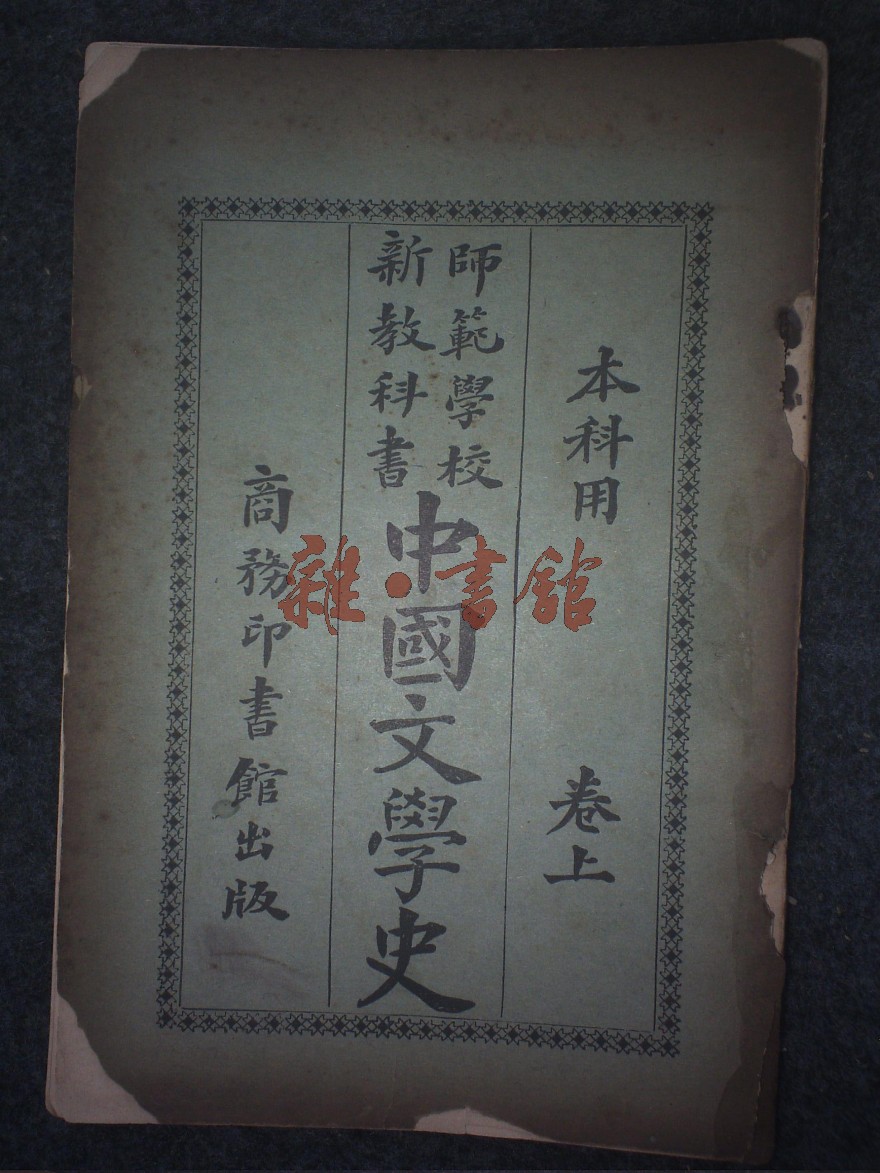 本科用 卷上
師範學校
新教科書
中國文學史
商務印書館出版
雜·書館